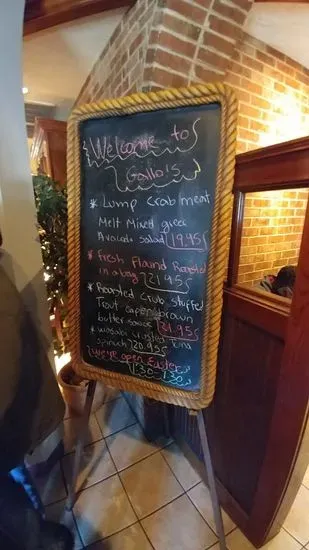 Welcome to
Gallo's
* Lump Crab meat
Melt Mixed greek
Avocado salad 19.95
* Fresh Flound Roasted
in a bag 21.95
* Roasted Crab stuffed
Trout caper brown
butter sauce 24.95
* wasabi crusted Tuna
spinach 20.95
we're open Easter
1:30-7:30